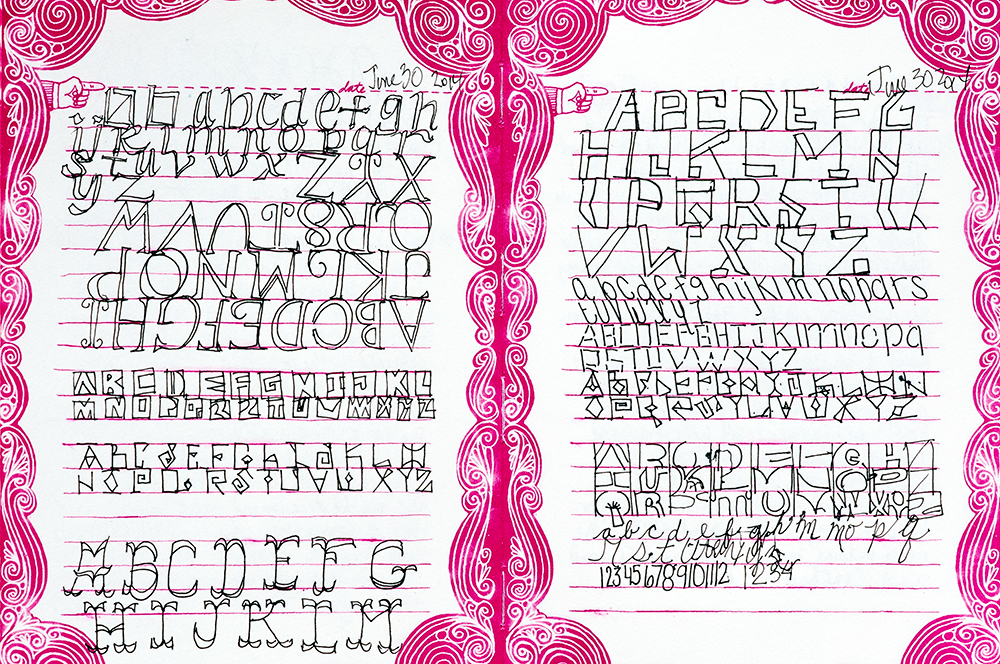 date June 30 2014
a b c d e f g h
i j k l m n o p q r
s t u v w x
y z
A B C D E F G H I
J K L M N O P
Q R S T U V W
X Y Z
A B C D E F G H I J K L
M N O P Q R S T U V W X Y Z
A B C D E F G H I J K L M
N O P Q R S T U V W X Y Z
A B C D E F G
H I J K L M
date June 30 2014
A B C D E F G
H I J K L M N
O P Q R S T U
V W X Y Z
a b c d e f g h i j k l m n o p q r s
t u v w x y z
A B C D E F G H I J K l m n o p q
R S T U V W X Y Z
A B C D E F G H I J K L M N
O P Q R S U V W X Y Z
A B C D E F G H
a b c d e f g h m n o p q
1 2 3 4 5 6 7 8 9 10 11 12 1 2 3 4